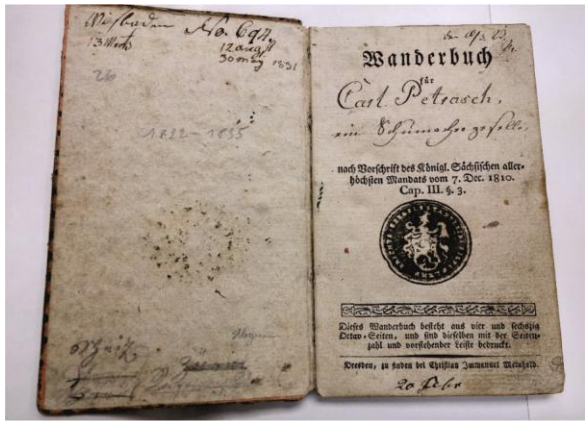 Wisbaden No. 694.
13 Mertz
12 augst
30 may 1831
26
1822-1835
Wanderbuch
für
Carl Petrasch,
ein Schumacher geselle,
nach Vorschrift des Königl. Sächsischen aller-
höchsten Mandats vom 7. Dec. 1810.
Cap. III. §. 3.
Dieses Wanderbuch besteht aus vier und sechszig
Octav-Seiten, und sind dieselben mit der Seiten-
zahl und vorstehender Leiste bedruckt.
Dresden, zu finden bei Christian Immanuel Meinhold.